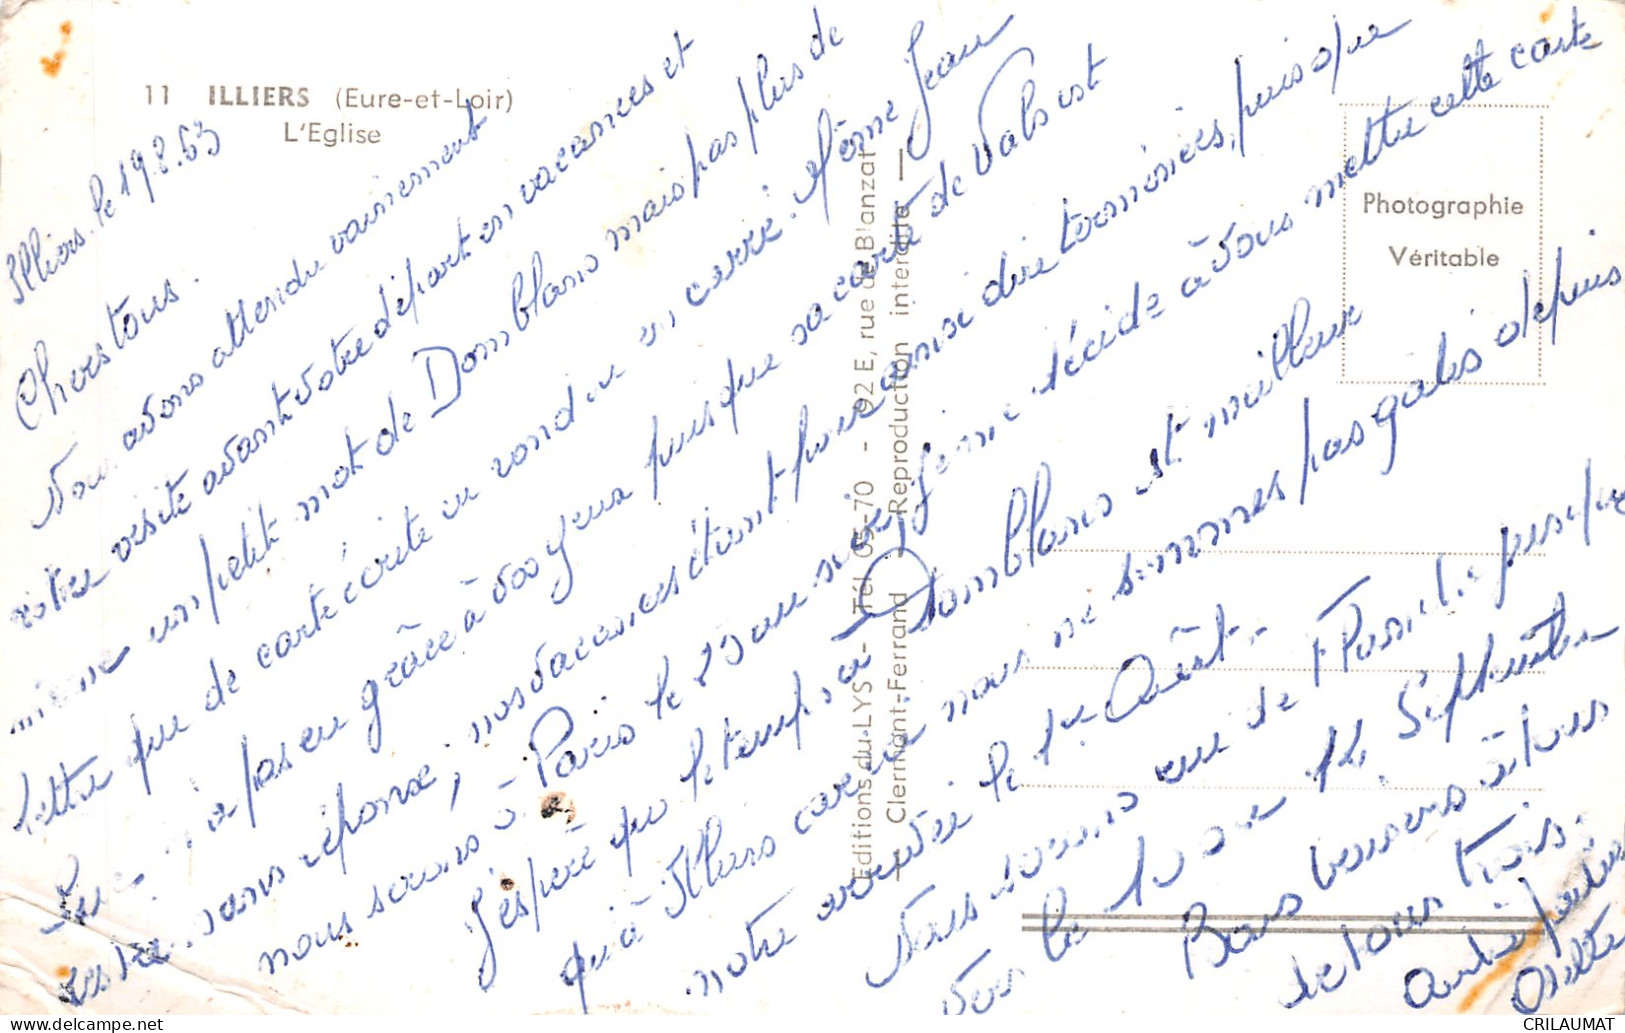 11 ILLIERS (Eure-et-Loir)
L'Eglise
Illiers. le 19.8.63
Chers tous.
Nous avons attendu vainement
votre visite avant votre départ en vacances et
même un petit mot de Domblans mais pas plus de
lettre que de carte écrite en rond ou en carré. Même Jean
n'a pas eu grâce à vos yeux puisque sa carte de Vals est
restée sans réponse; nos vacances étant pour ainsi dire terminées, puisque
nous serons à Paris le 23 au soir, je me décide à vous mettre cette carte
J'espère que le temps à Domblans est meilleur
qu'à Illiers car nous ne sommes pas gâtés depuis
notre arrivée le 1er Août.
Nous serons rue de jusque
vers le 10 ou 12 Septembre
Bons baisers à tous
de tous trois.
André
Odette
Editions du LYS - Tél 05-70 - 92 E, rue de Blanzat
Clermont-Ferrand Reproduction interdite
Photographie
Véritable
CRILAUMAT